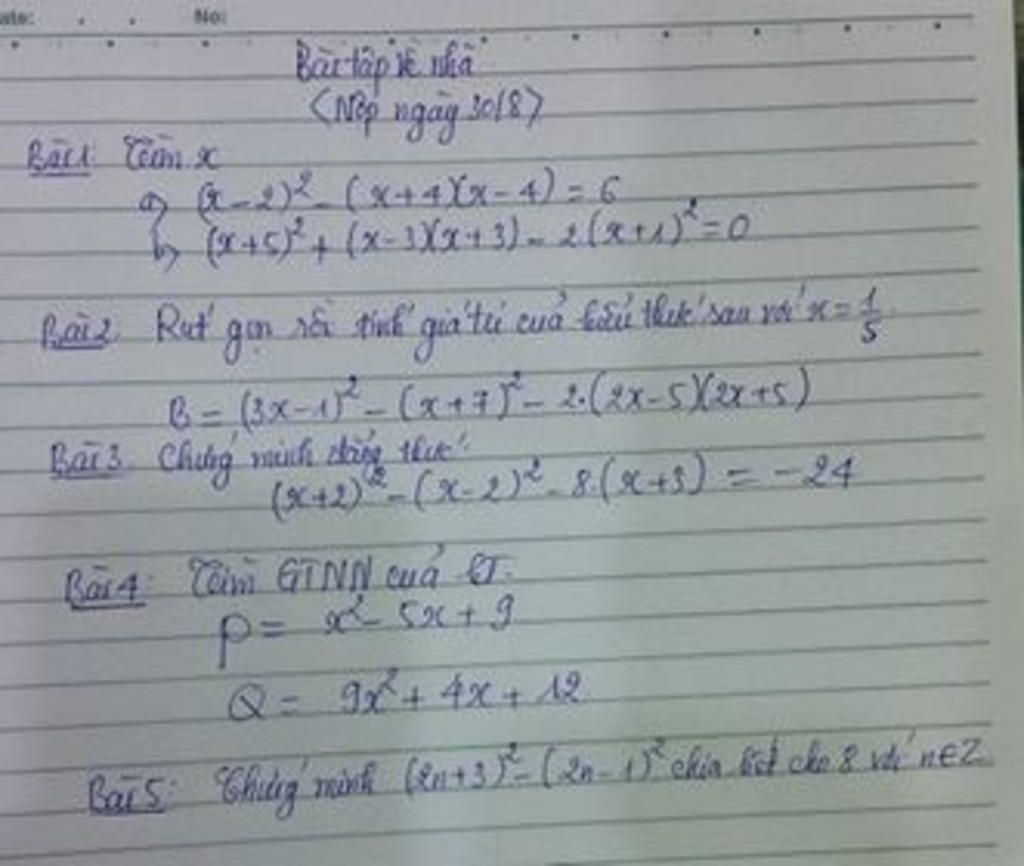 ate: No:
Bài tập về nhà
(Nộp ngày 30/8)
Bài 1 Tìm x
a, (x-2)² - (x+4)(x-4) = 6
b, (x+5)² + (x-3)(x+3) - 2(x+1)² = 0
Bài 2 Rút gọn rồi tính giá trị của biểu thức sau với x = 1/5
B = (3x-1)² - (x+7)² - 2.(2x-5)(2x+5)
Bài 3 Chứng minh đẳng thức:
(x+2)² - (x-2)² - 8.(x+3) = -24
Bài 4: Tìm GTNN của BT.
P = x² - 5x + 9
Q = 9x² + 4x + 12
Bài 5: Chứng minh (2n+3)² - (2n-1)² chia hết cho 8 với n∈Z